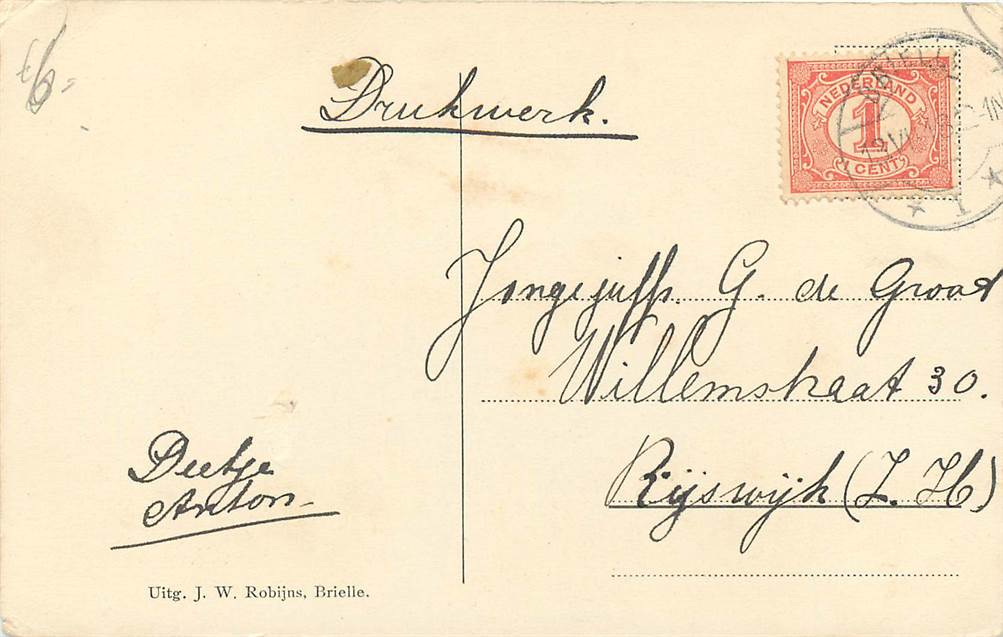 f 6=
Drukwerk.
NEDERLAND
1
1 CENT
BRIELLE
1
Jongejuffr. G. de Groot
Willemstraat 30.
Rijswijk (Z. H.)
Deetje
Anton
Uitg. J. W. Robijns, Brielle.